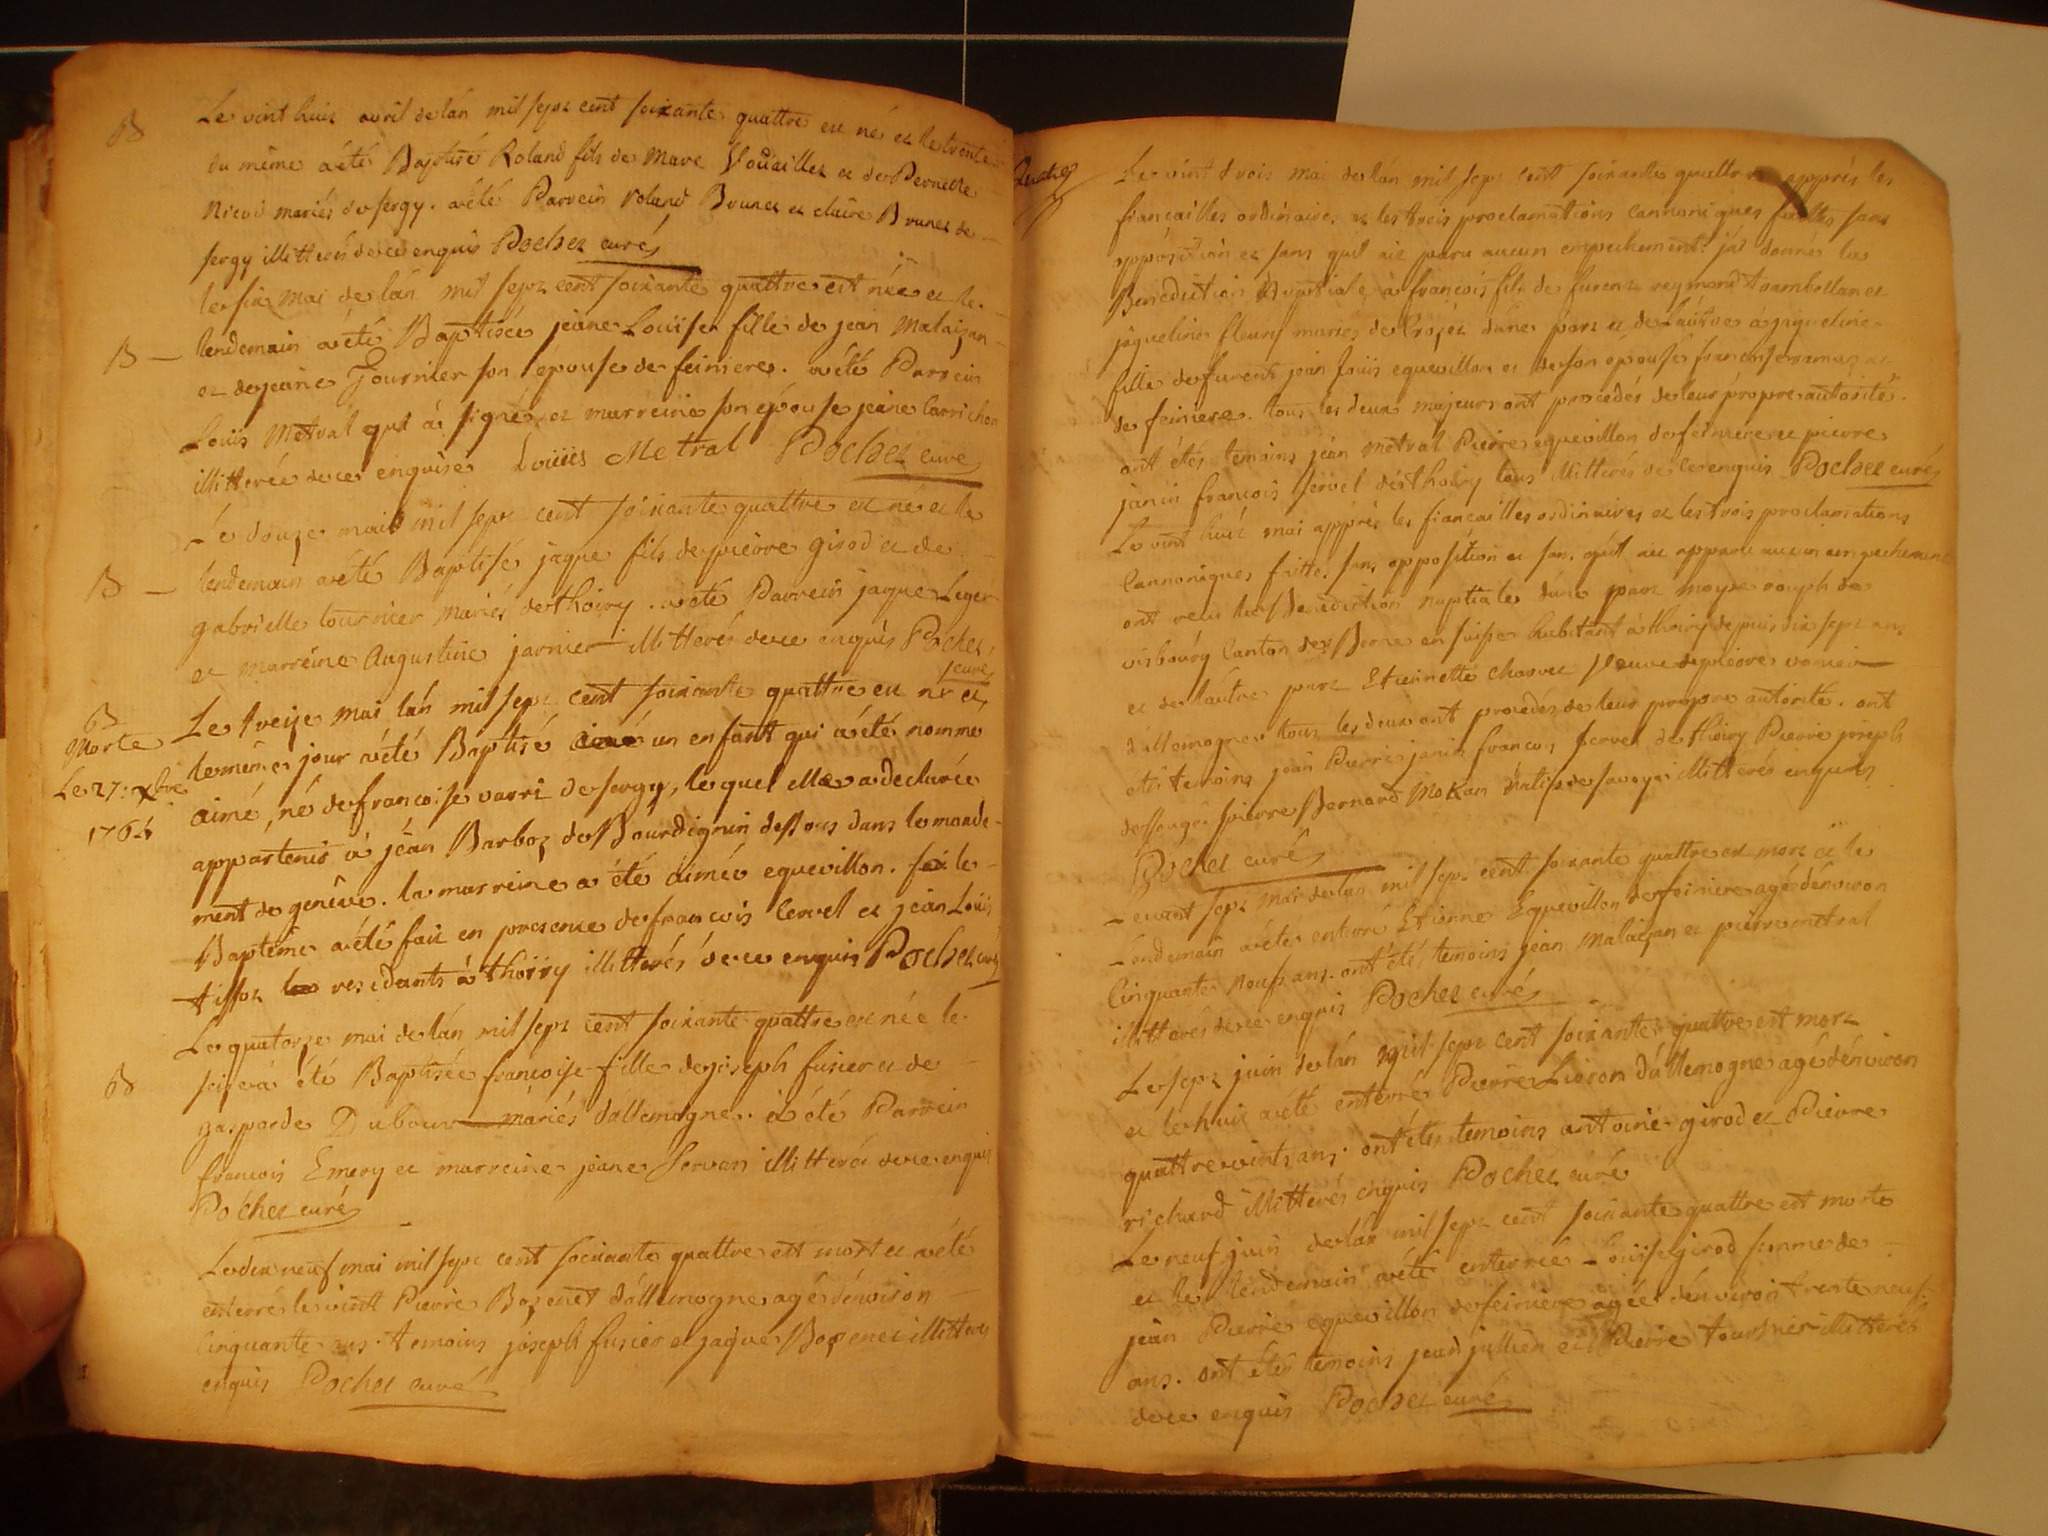 B
Le vint huit avril de lán mil sept cent soixante quattre est né et le trente
du même a été Baptisé Roland fils de Marc et de Pernette
Nicod mariés de sergy. a été Parrein roland Brunet et claire Brunet de
sergy illitterés de ce enquis Pochet curé
le six mai de lán mil sept cent soixante quattre est née et le
B — lendemain a été Baptisée jeane Louise fille de jean Malaizan
et de jeane Fournier son épouse de feiniere. a été Parrein
Louis Metral qui à signé et marreine son épouse jeane
illitterée de ce enquise Louiis Metral Pochet curé
Le douze mai mil sept cent soixante quattre est né et le
B — lendemain a été Baptisé jaque fils de pierre girod et de
gabrielle tournier mariés de thoiry. a été Parrein jaque Leger
et marreine Augustine jarnier illitterés de ce enquis Pochet
curé
B
Morte
Le 27: xbre
1764
Le treize mai lán mil sept cent soixante quattre est né et
le même jour a été Baptisé un enfant qui a été nommé
aimé, né de francoise varri de sergy, le quel elle a declarée
appartenir à jéan Barboz de Bourdignin dessous dans le mande
ment de genêve. la marreine a été aimée equevillon. le
Baptême a été fait en presence de francois Servel et jean Louis
tissot residants à thoiry illitterés de ce enquis Pochet curé
Le quatorze mai de lán mil sept cent soixante quattre est née le
B
seize a été Baptisée francoise fille de joseph fusier et de
gasparde Dubour mariés dállemogne. à été Parrein
francois Emery et marreine jeane Servan illitterés de ce enquis
Pochet curé
Le dix neuf mai mil sept cent soixante quattre est mort et a été
enterré le vint Pierre Bozonet dállemogne agé dénviron
cinquante ans. temoins joseph fusier et jaque Bozonet illitterés
enquis Pochet curé
Le vint trois mai de lán mil sept cent soixante quattre apprés les
fiancailles ordinaires et les trois proclamations cannoniques faittes sans
opposition et sans quil ait paru aucun empechement. jái donné la
Benediction Nuptiale à francois fils de furent reymond et
jaqueline fleury mariés de Crozet dúne part et de láutre à jaqueline
fille de furent jean Louis equevillon et de son épouse
de feiniere. tous les deux majeurs ont procedés de leur propre autorité.
ont étés temoins jéan métral Pierre equevillon de feiniere et pierre
janin francois servel de thoiry tous illitterés de ce enquis Pochet curé
Le vint huit mai apprés les fiancailles ordinaires et les trois proclamations
cannoniques faitte sans opposition et sans quil ait apparu aucun empechement
ont recu la Benediction nuptiale dúne part moyse de
canton de Berne en suisse habitant à thoiry depuis dix sept ans
et de láutre part Etiennette Charvet Veuve de pierre
dállemogne tous les deux ont procedés de leur propre autorité. ont
étés temoins jean Pierre janin francois servel de thoiry Pierre joseph
pierre Bernard de savoye illitterés enquis
Pochet curé
Le vint sept mai de lán mil sept cent soixante quattre est mort et le
Lendemain a été enterré Etienne Equevillon de feiniere agé dénviron
cinquante neuf ans. ont été temoins jéan Malaizan et pierre métral
illitterés de ce enquis Pochet curé
Le sept juin de lán mil sept cent soixante quattre est mort
et le huit a été enterré Pierre Livron dállemogne agé dénviron
quattre vints ans. ont étés temoins antoine girod et Pierre
richard illitterés enquis Pochet curé
Le neuf juin de lán mil sept cent soixante quattre est morte
et le lendemain a été enterrée Louise girod femme de
jéan Pierre equevillon de feiniere agée dénviron trente neuf
ans. ont étés temoins jean jullien et Pierre tournier illitterés
de ce enquis Pochet curé